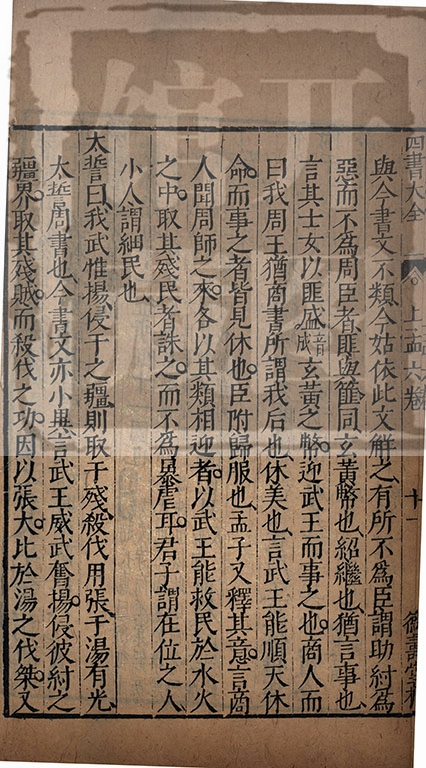 四書大全 上孟六卷 十一
與今書文不類今姑依此文解之有所不為臣謂助紂為
惡而不為周臣者匪與篚同玄黃幣也紹繼也猶言事也
言其士女以匪盛音成玄黃之幣迎武王而事之也商人而
曰我周王猶商書所謂我后也休美也言武王能順天休
命而事之者皆見休也臣附歸服也孟子又釋其意言商
人聞周師之來各以其類相迎者以武王能救民於水火
之中取其殘民者誅之而不為暴虐耳君子謂在位之人
小人謂細民也
太誓曰我武惟揚侵于之疆則取于殘殺伐用張于湯有光
太誓周書也今書文亦小異言武王威武奮揚侵彼紂之
疆界取其殘賊而殺伐之功因以張大比於湯之伐桀又